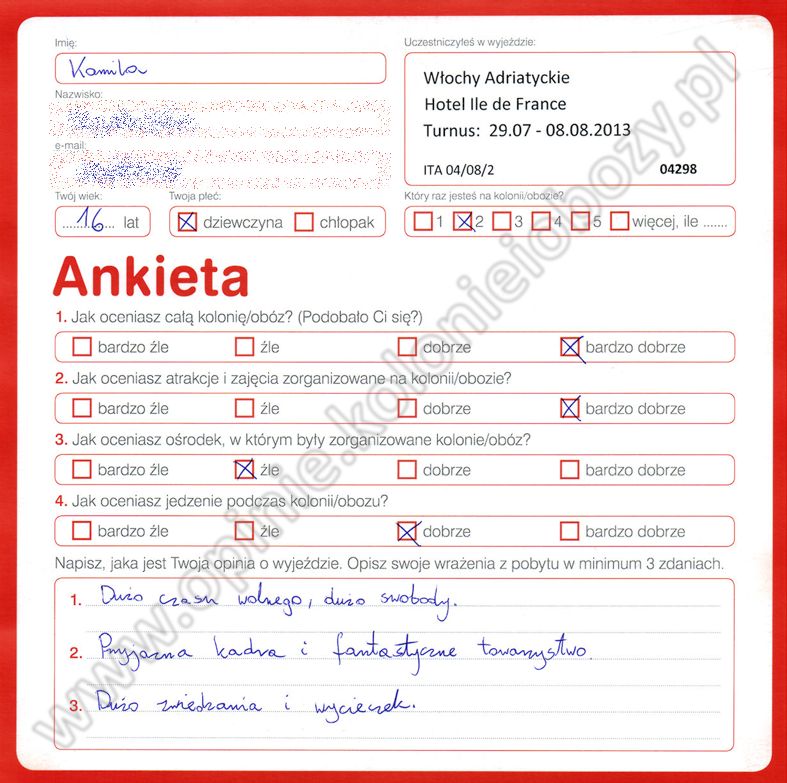 Imię:
Kamila
Nazwisko:
e-mail:
Twój wiek:
16 lat
Twoja płeć:
dziewczyna chłopak
Uczestniczyłeś w wyjeździe:
Włochy Adriatyckie
Hotel Ile de France
Turnus: 29.07 - 08.08.2013
ITA 04/08/2 04298
Który raz jesteś na kolonii/obozie?
1 2 3 4 5 więcej, ile .......
Ankieta
1. Jak oceniasz całą kolonię/obóz? (Podobało Ci się?)
bardzo źle źle dobrze bardzo dobrze
2. Jak oceniasz atrakcje i zajęcia zorganizowane na kolonii/obozie?
bardzo źle źle dobrze bardzo dobrze
3. Jak oceniasz ośrodek, w którym były zorganizowane kolonie/obóz?
bardzo źle źle dobrze bardzo dobrze
4. Jak oceniasz jedzenie podczas kolonii/obozu?
bardzo źle źle dobrze bardzo dobrze
Napisz, jaka jest Twoja opinia o wyjeździe. Opisz swoje wrażenia z pobytu w minimum 3 zdaniach.
1. Dużo czasu wolnego, dużo swobody.
2. Przyjazna kadra i fantastyczne towarzystwo.
3. Dużo zwiedzania i wycieczek.
www.opinie.kolonieiobozy.pl